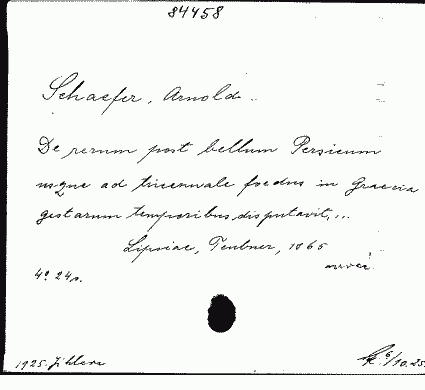 84458
Schaefer, Arnold.
De rerum post bellum Persicum
usque ad tricennale foedus in Graecia
gestarum temporibus disputavit,...
Lipsiae, Teubner, 1865
4° 24 p.
1925. Jihlava
6/10.25.